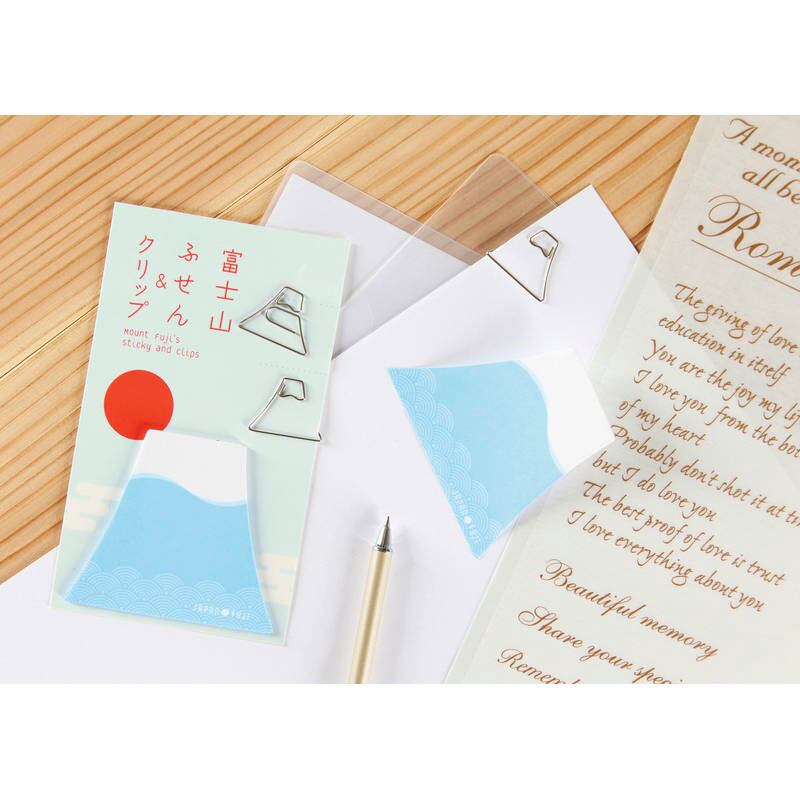 富士山
ふせん
&
クリップ
Mount Fuji's
sticky and clips
JAPAN FUJI
JAPAN FUJI
A mom
all be
Rom
The giving of love
education in itself
You are the joy my lif
I love you from the bot
of my heart
Probably don't shot it at tin
but I do love you
The best proof of love is trust
I love everything about you
Beautiful memory
Share your speci
Rememb